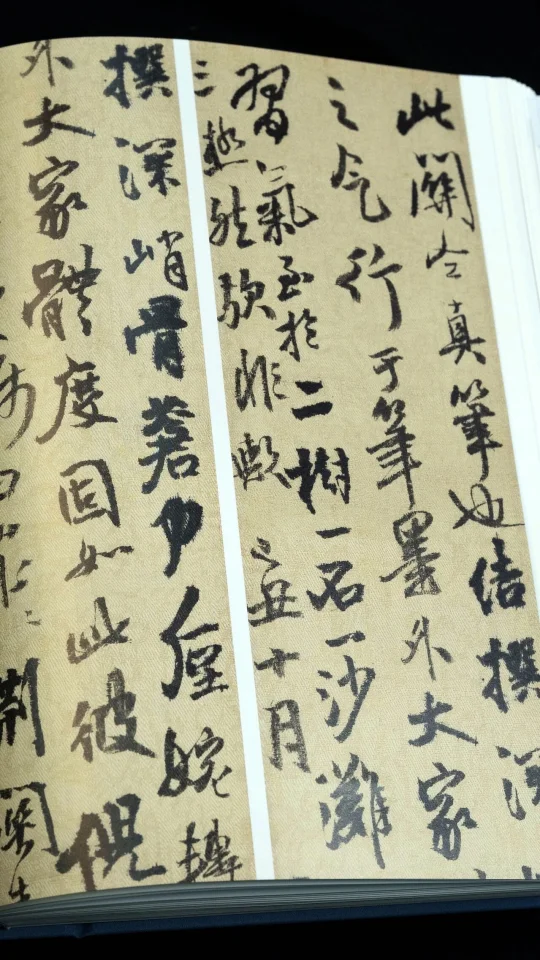 此關仝真筆也結撰深
之气行于筆墨外大家
習氣至於二樹一石一沙灘
三極然歟非歟己丑十月
撰深峭骨蒼力厚婉轉
外大家體度固如此彼倪
荊關